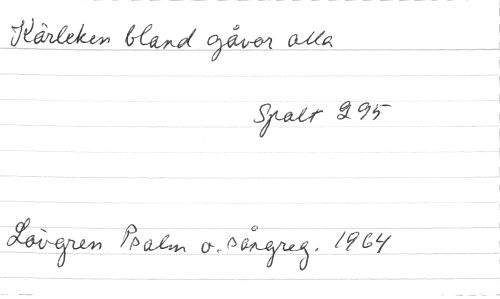 Kärleken bland gåvor alla
Spalt 295
Lövgren Psalm o. sångreg. 1964